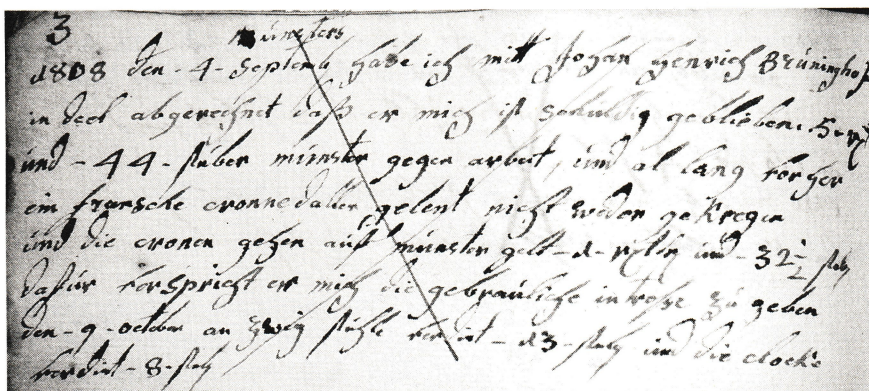 3
münsters
1808 den - 4 - Septemb habe ich mitt Johan Henrich Brüninghof
in deel abgerechnet daß er mich ist schuldig geblieben 5
und - 44 - stüber münster gegen arbeit, und al lang forher
ein fransche cronnedaller gelent nicht weder gekregen
und die cronen gehen auff münster gelt - 1 - und - 32 1/2 stb
dafür ferspricht er mich die gebrauliche intrehse zu geben
den - 9 - october an stühle ferdint - 13 - stb und die clocke
ferdint - 8 - stb